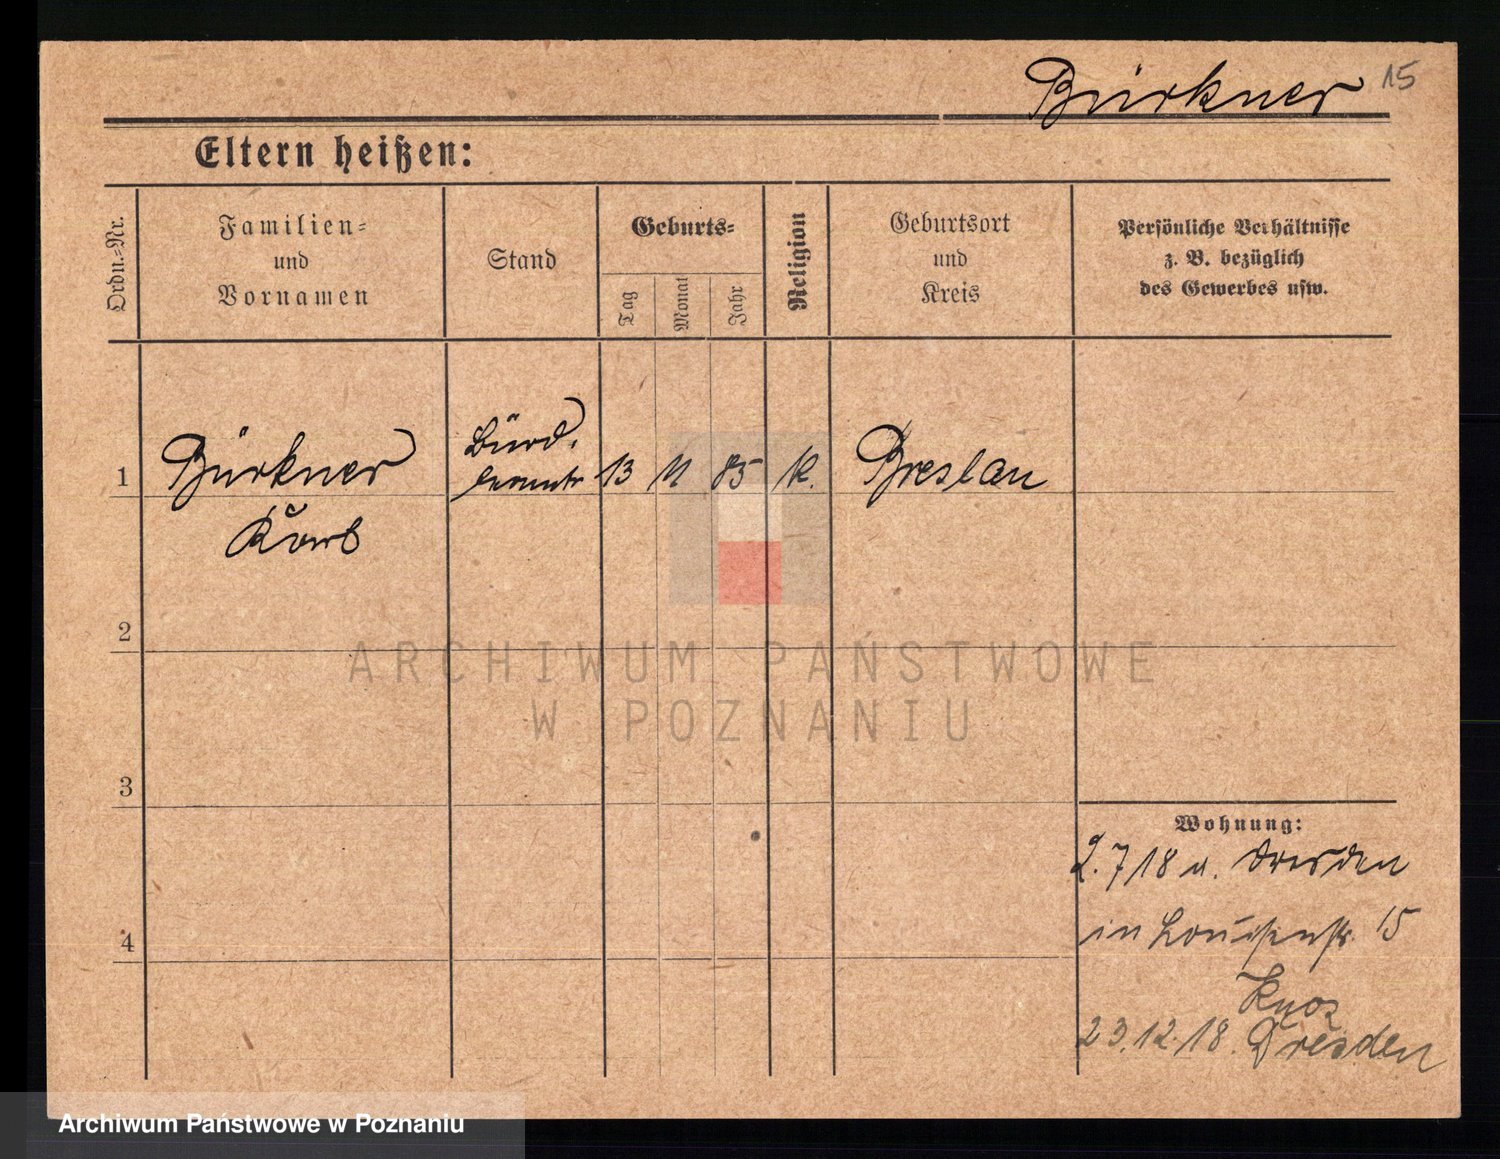 Bürkner 15
Eltern heißen:
Ordn.-Nr.
Familien-
und
Vornamen
Stand
Geburts-
Tag
Monat
Jahr
Religion
Geburtsort
und
Kreis
Persönliche Verhältnisse
z. B. bezüglich
des Gewerbes usw.
1
Bürkner
Kurt
13 11 85 K. Breslau
2
ARCHIWUM PAŃSTWOWE
W POZNANIU
3
Wohnung:
2.7 18 v. Dresden
in Louisenstr. 15
4
23.12.18. Dresden
Archiwum Państwowe w Poznaniu